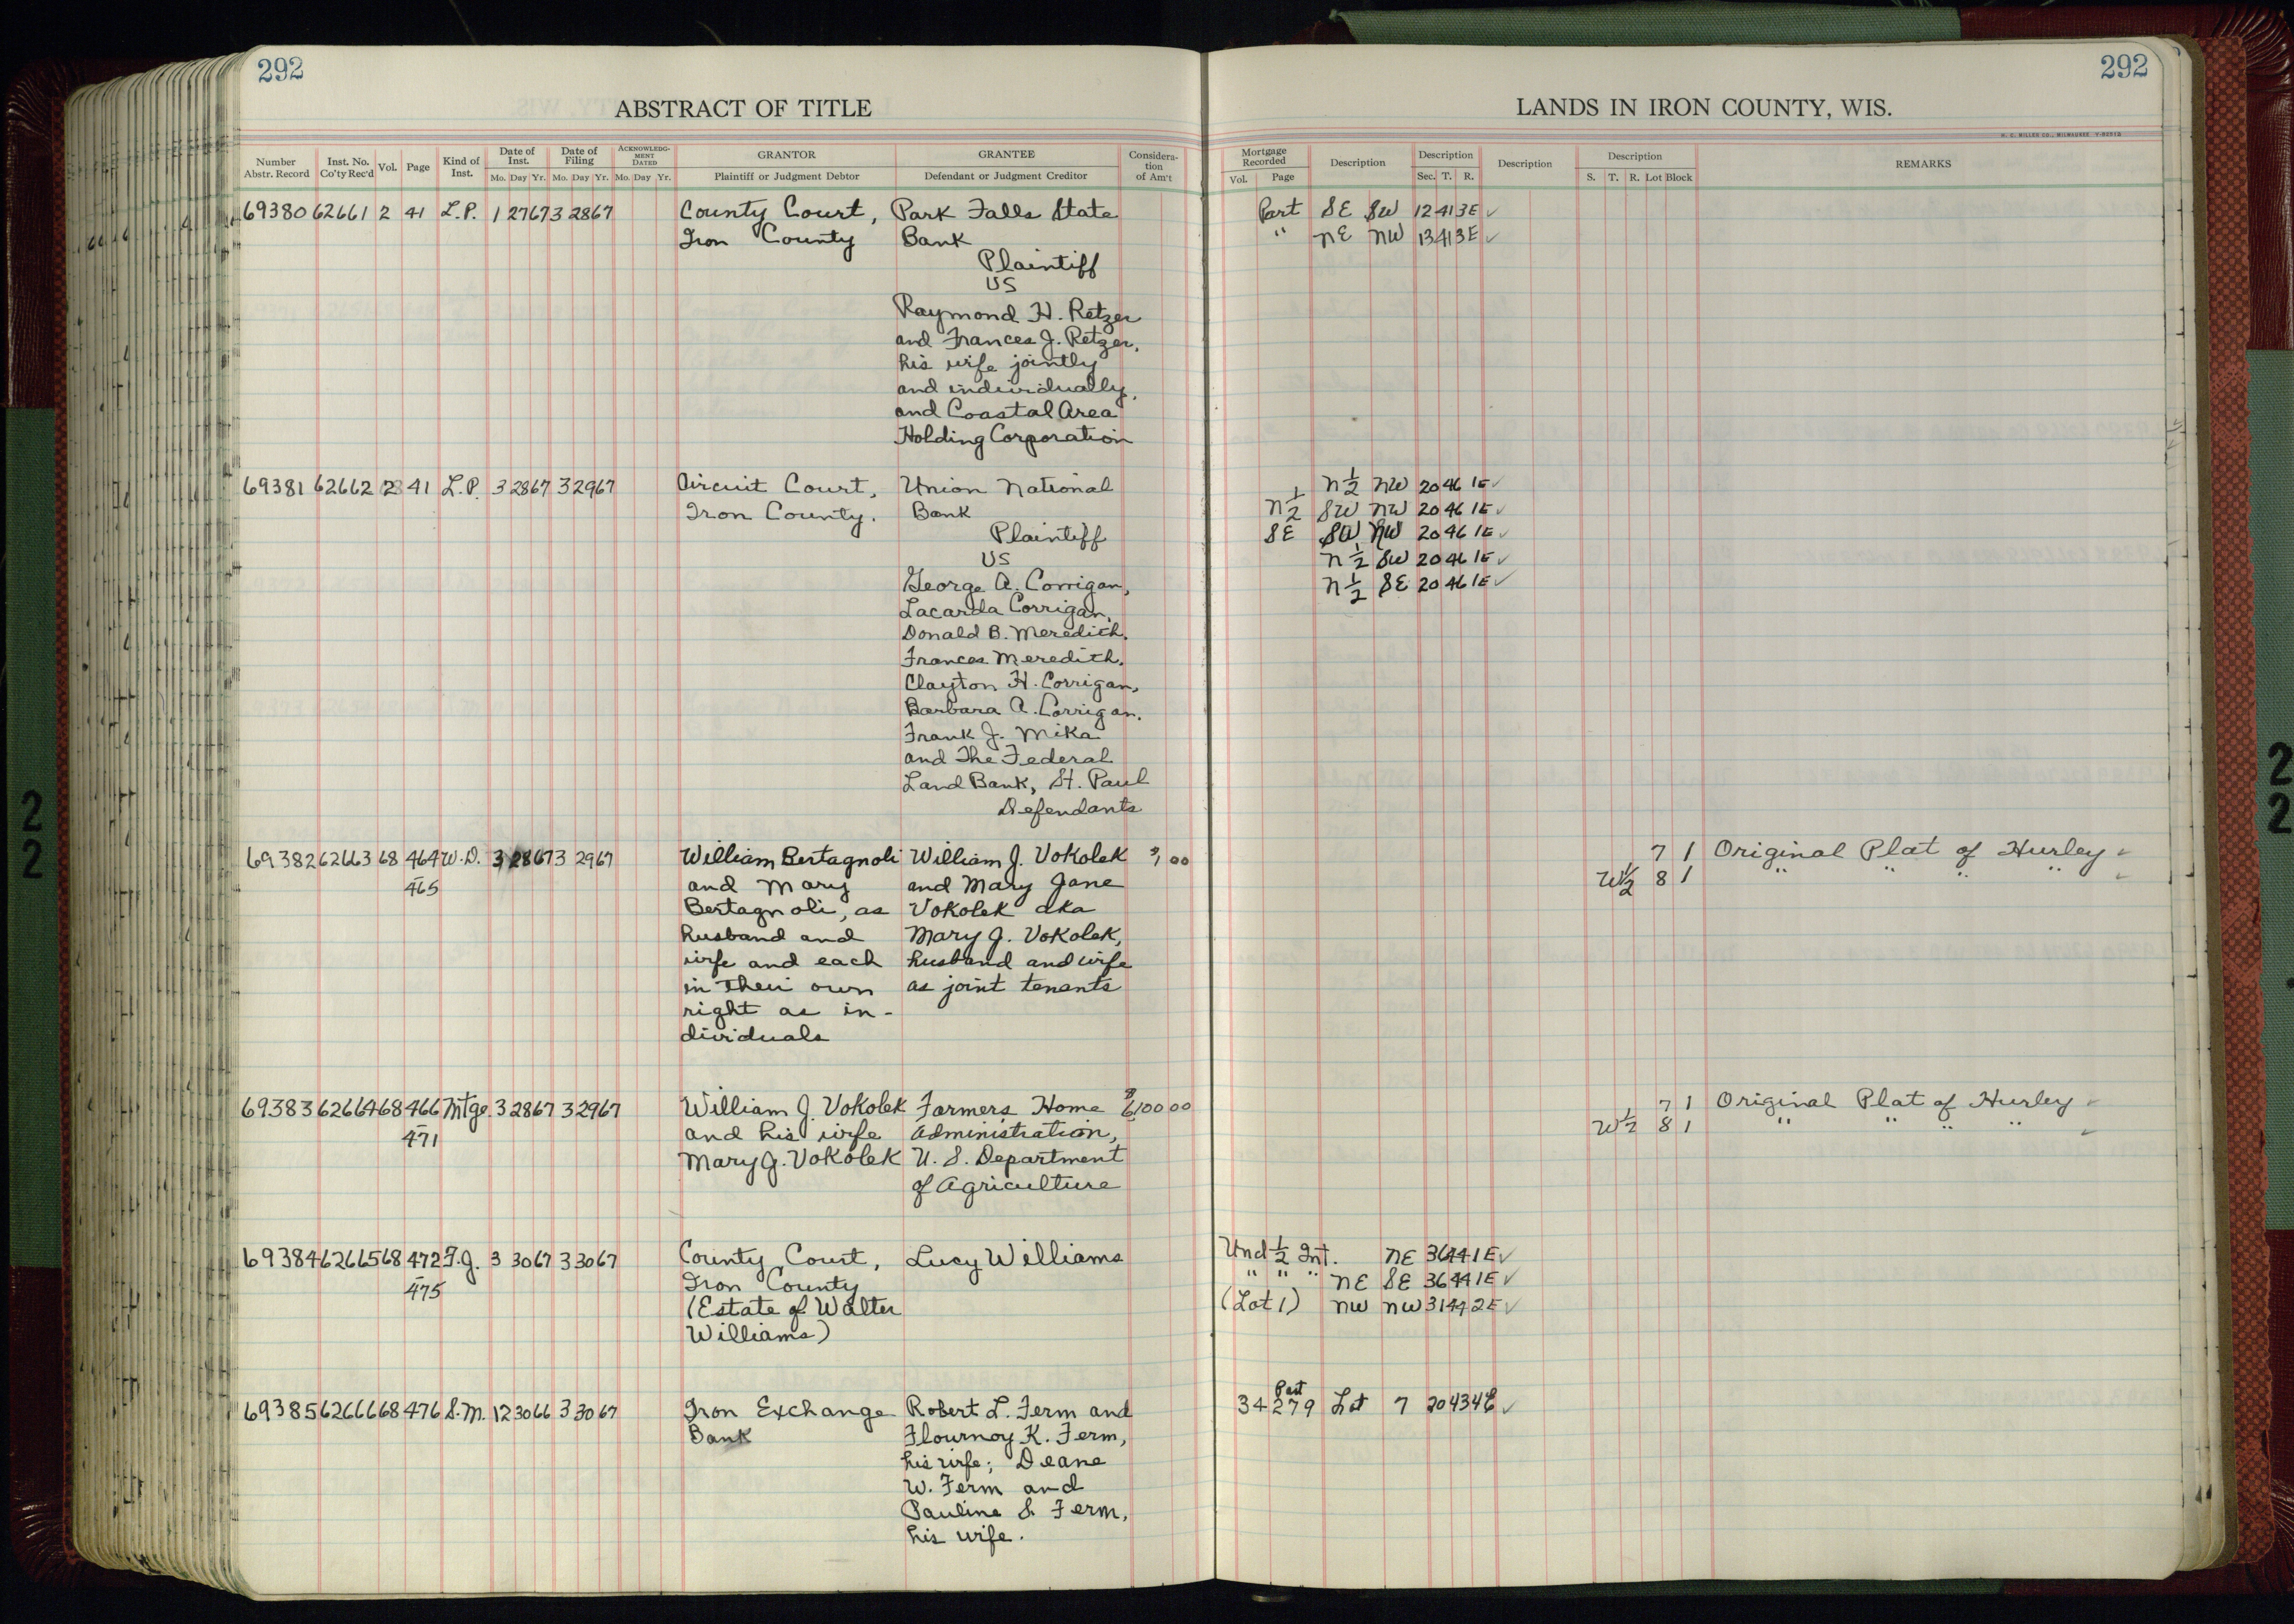 292
292
ABSTRACT OF TITLE
LANDS IN IRON COUNTY, WIS.
H. C. MILLER CO., MILWAUKEE
Number Abstr. Record
Inst. No. Co'ty Rec'd
Vol.
Page
Kind of Inst.
Date of Inst.
Mo. Day Yr.
Date of Filing
Mo. Day Yr.
ACKNOWLEDGMENT DATED
Mo. Day Yr.
GRANTOR
Plaintiff or Judgment Debtor
GRANTEE
Defendant or Judgment Creditor
Consideration of Am't
Mortgage Recorded
Vol. Page
Description
Description
Sec. T. R.
Description
Description
S. T. R. Lot Block
REMARKS
69380 62661 2 41 L.P. 1 27 67 3 28 67 County Court, Park Falls State Part SE SW 12 41 3E ✓
Iron County Bank " NE NW 13 41 3E ✓
Plaintiff
VS
Raymond H. Retzer
and Frances J. Retzer,
his wife jointly
and individually,
and Coastal Area
Holding Corporation
69381 62662 2 41 L.P. 3 28 67 3 29 67 Circuit Court, Union National N½ NW 20 46 1E ✓
Iron County. Bank N½ SW NW 20 46 1E ✓
Plaintiff SE SW NW 20 46 1E ✓
VS N½ SW 20 46 1E ✓
George A. Corrigan, N½ SE 20 46 1E ✓
Lacarda Corrigan,
Donald B. Meredith,
Frances Meredith,
Clayton H. Corrigan,
Barbara A. Corrigan,
Frank J. Mika
and The Federal
Land Bank, St. Paul
Defendants
69382 62663 68 464 W.D. 3 28 67 3 29 67 William Bertagnoli William J. Vokolek 1 00 7 1 Original Plat of Hurley ✓
- 465 and Mary and Mary Jane W½ 8 1 " " " " ✓
Bertagnoli, as Vokolek aka
husband and Mary J. Vokolek,
wife and each husband and wife
in their own as joint tenants
right as in-
dividuals
69383 62664 68 466 Mtge. 3 28 67 3 29 67 William J. Vokolek Farmers Home $6,100 00 7 1 Original Plat of Hurley ✓
- 471 and his wife Administration, W½ 8 1 " " " " ✓
Mary J. Vokolek U. S. Department
of Agriculture
69384 62665 68 472 F.J. 3 30 67 3 30 67 County Court, Lucy Williams Und ½ Int. NE 36 44 1E ✓
- 475 Iron County " " " NE SE 36 44 1E ✓
(Estate of Walter (Lot 1) NW NW 31 44 2E ✓
Williams)
Part
69385 62666 68 476 S.M. 12 30 66 3 30 67 Iron Exchange Robert L. Ferm and 34 279 Lot 7 20 43 4E ✓
Bank Flournoy K. Ferm,
his wife; Deane
W. Ferm and
Pauline S. Ferm,
his wife.
22
22